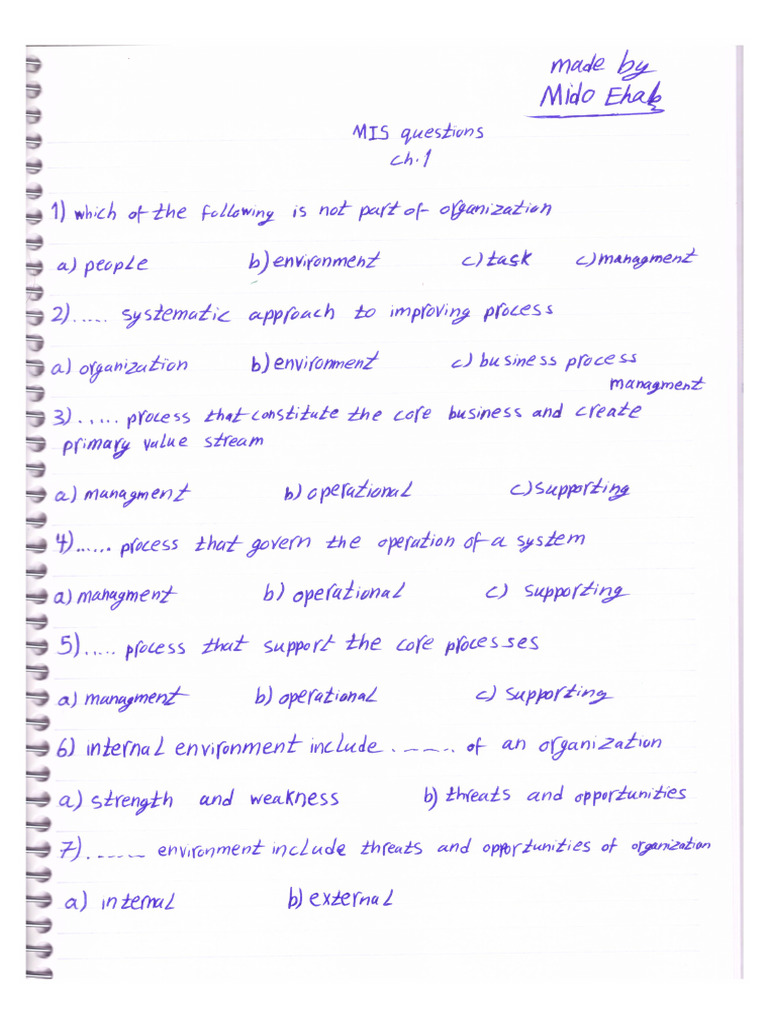 made by
Mido Ehab
MIS questions
ch.1
1) which of the following is not part of organization
a) people b) environment c) task c) managment
2) ..... systematic approach to improving process
a) organization b) environment c) business process
managment
3) ..... process that constitute the core business and create
primary value stream
a) managment b) operational c) supporting
4) ...... process that govern the operation of a system
a) managment b) operational c) supporting
5) ..... process that support the core processes
a) managment b) operational c) supporting
6) internal environment include ...... of an organization
a) strength and weakness b) threats and opportunities
7) ...... environment include threats and opportunities of organization
a) internal b) external